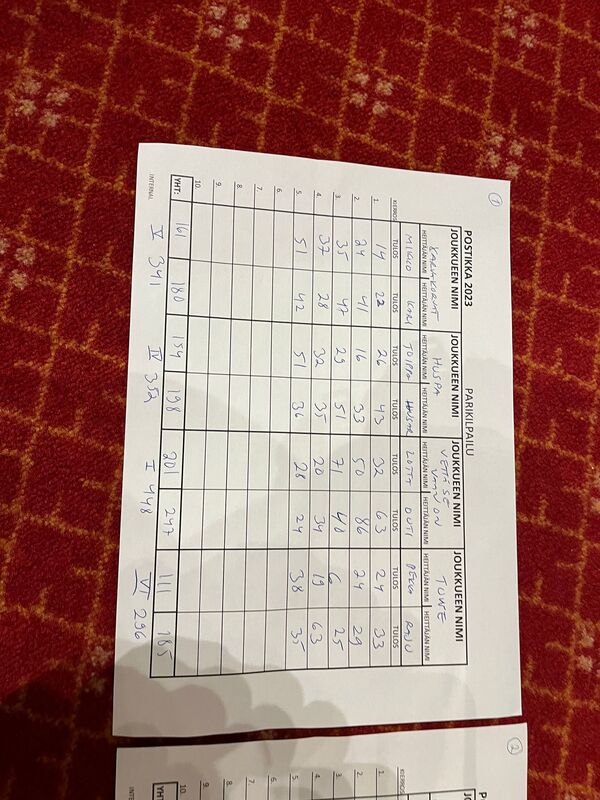 1
POSTIKKA 2023 PARIKILPAILU
JOUKKUEEN NIMI JOUKKUEEN NIMI JOUKKUEEN NIMI JOUKKUEEN NIMI
HUSPA VETTÄ SE VAAN ON
HEITTÄJÄN NIMI HEITTÄJÄN NIMI HEITTÄJÄN NIMI HEITTÄJÄN NIMI HEITTÄJÄN NIMI HEITTÄJÄN NIMI HEITTÄJÄN NIMI HEITTÄJÄN NIMI
MIKKO KARI TOIPPA LOTTA OUTI PEKKA RAJU
KIERROS TULOS TULOS TULOS TULOS TULOS TULOS TULOS TULOS
1. 14 22 26 43 32 63 24 33
2. 24 41 16 33 50 86 24 29
3. 35 47 29 51 71 40 6 25
4. 37 28 32 35 20 34 19 63
5. 51 42 51 36 28 24 38 35
6.
7.
8.
9.
10.
YHT: 161 180 154 198 201 247 111 185
V 341 IV 352 I 448 VI 296
INTERNAL
2
KIERROS
1.
2.
3.
4.
5.
6.
7.
8.
9.
10.
YHT:
INTERNAL